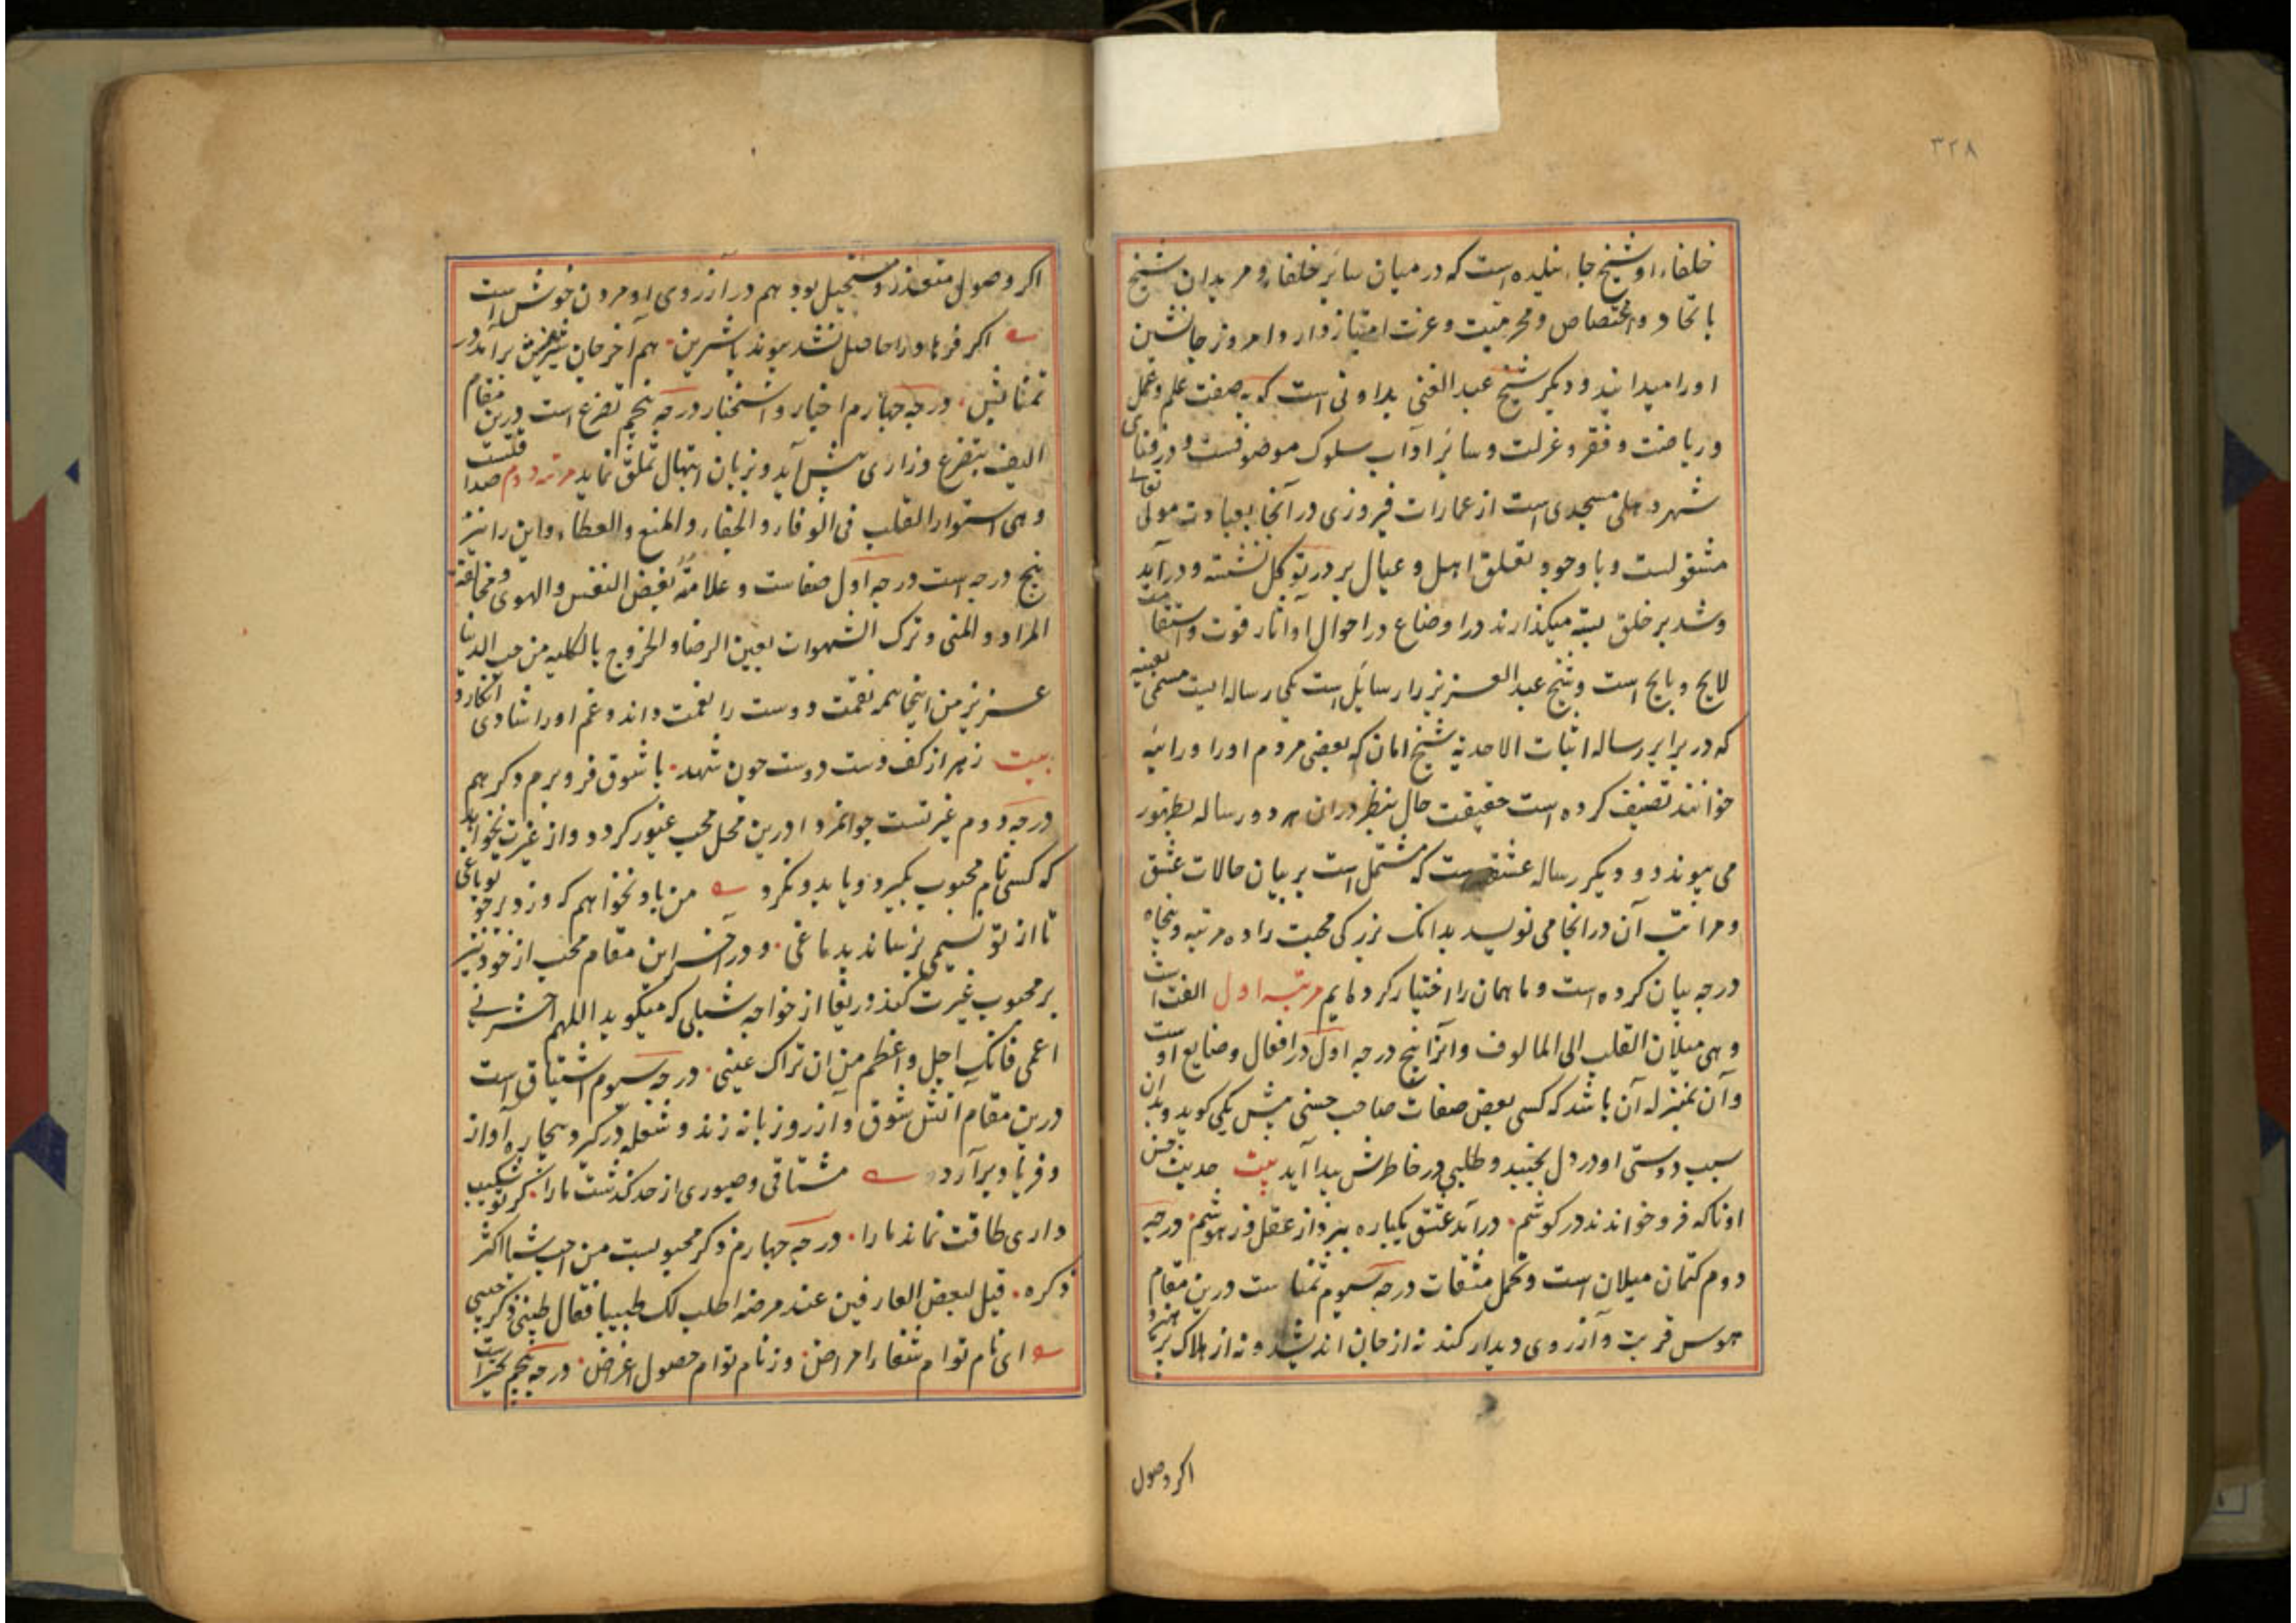 ۳۲۸
خلفاء او شیخ جا ئیلده است که در میان سائر خلفاء و مریدان شیخ
باتحاد و اختصاص و محرمیت و عزت امتیاز دارد و امروز جانشین
او را میدانند و دیکر شیخ عبد الغنی بداونی است که بصفت علم و عمل
و ریاضت و فقر و عزلت و سائر اداب سلوک موصوفست و در فنای
شهر دهلی مسجدی است از عمارات فیروزی در آنجا بعبادت مولی تعالی
مشغولست و با وجود تعلق اهل و عیال بر در توکل نشسته و در آید
و شد بر خلق بسته میکذارند در اوضاع در احوال او آثار قوت و استقامت
لایح و بایح است و شیخ عبد العزیز را رسایل است یکی رساله ایست مسمی بعینیه
که در برابر رساله اثبات الاحدیه شیخ امان که بعضی مردم او را ورائیه
خوانند تصنیف کرده است حقیقت حال بنظر در ان هر دو رساله بظهور
می پیوندد و دیکر رساله عشقیه است که مشتمل است بر بیان حالات عشق
و مراتب آن در انجا می نویسد بدانک بزرکی محبت را ده مرتبه و پنجاه
درجه بیان کرده است و ما همان را اختیار کرده ایم مرتبه اول الفت است
وهی میلان القلب الی المالوف و انرا پنج درجه اول در افعال و صنایع اوست
و آن بمنزله آن باشد که کسی بعض صفات صاحب حسنی پیش یکی کوید و بدان
سبب دوستی او در دل بجنبد و طلبی در خاطرش پیدا آید بیت حدیث حسن
او تا که فرو خواندند در کوشم درآمد عشق یکباره ببرد از عقل و ز هوشم درجه
دوم کتمان میلان است و تحمل مشقات درجه سیوم تمناست درین مقام
هوس قربت و آرزوی دیدار کند نه از جان اندیشد و نه از هلاک بپرهیزد
اکر وصول
اکر وصول متعذر و مستحیل بود هم در آرزوی او مردن خوش است
اکر فرهاد را حاصل نشد پیوند با شیرین هم آخر جان شیرینش برآمد در
تمنائش درجه چهارم اخبار و استخبار درجه پنجم تضرع است درین مقام
الیف بتضرع و زاری پیش آید و بزبان ابتهال تملق نماید مرتبه دوم صداقتست
وهی استوار القلب فی الوفاء و الجفاء و المنع و العطاء و این را نیز
پنج درجه است درجه اول صفاست و علامته بغض النفس و الهوی و مخالفة
المراد و المنی و ترک الشهوات بعین الرضا و الخروج بالکلیه من حب الدنیا
عزیز من اینجا همه نقمت دوست را نعمت داند و غم او را شادی انکارد
بیت زهر از کف دست دوست چون شهد با شوق فرو برم و کر هم
درجه دوم غیرتست جوانمردا درین محل محب غیور کردد و از غیرت نخواهد
که کسی نام محبوب بکیرد و یا بدو نکرد من باد نخواهم که وزد بر چو تو باغی
تا از تو نسیمی برساند بدماغی و در آخر این مقام محب از خود نیز
بر محبوب غیرت کند دریغا از خواجه شبلی که میکوید اللهم احشرنی
اعمی فانک اجل و اعظم من ان تراک عینی درجه سیوم اشتیاق است
درین مقام آتش شوق و آرزو زبانه زند و شعله درکیرد بیچاره آواز
و فریاد برآرد مشتاقی و صبوری از حد کذشت یارا کر تو شکیب
داری طاقت نماند ما را درجه چهارم ذکر محبوبست من احب شیئا اکثر
ذکره قیل لبعض العارفین عند مرضه اطلب لک طبیبا فقال طبیبی ذکر حبیبی
ای نام توام شفاء امراض وز نام توام حصول اغراض درجه پنجم تحیر است